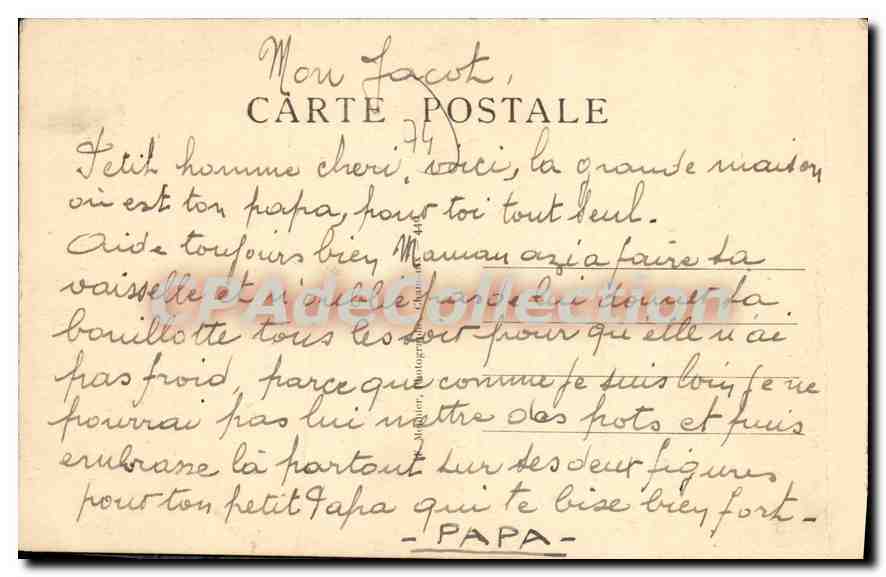 Mon Jacot,
CARTE POSTALE
74
Petit homme cheri, voici, la grande maison
où est ton papa, pour toi tout seul.
Aide toujours bien Maman a faire sa
vaisselle et n'oublie pas de lui donner sa
bouillotte tous les soir pour qu'elle n'ai
pas froid, parce que comme je suis loin je ne
pourrai pas lui mettre des pots et puis
embrasse là partout sur ses deux figures
pour ton petit Papa qui te bise bien fort -
- PAPA -
CPAdeCollection
Photographe